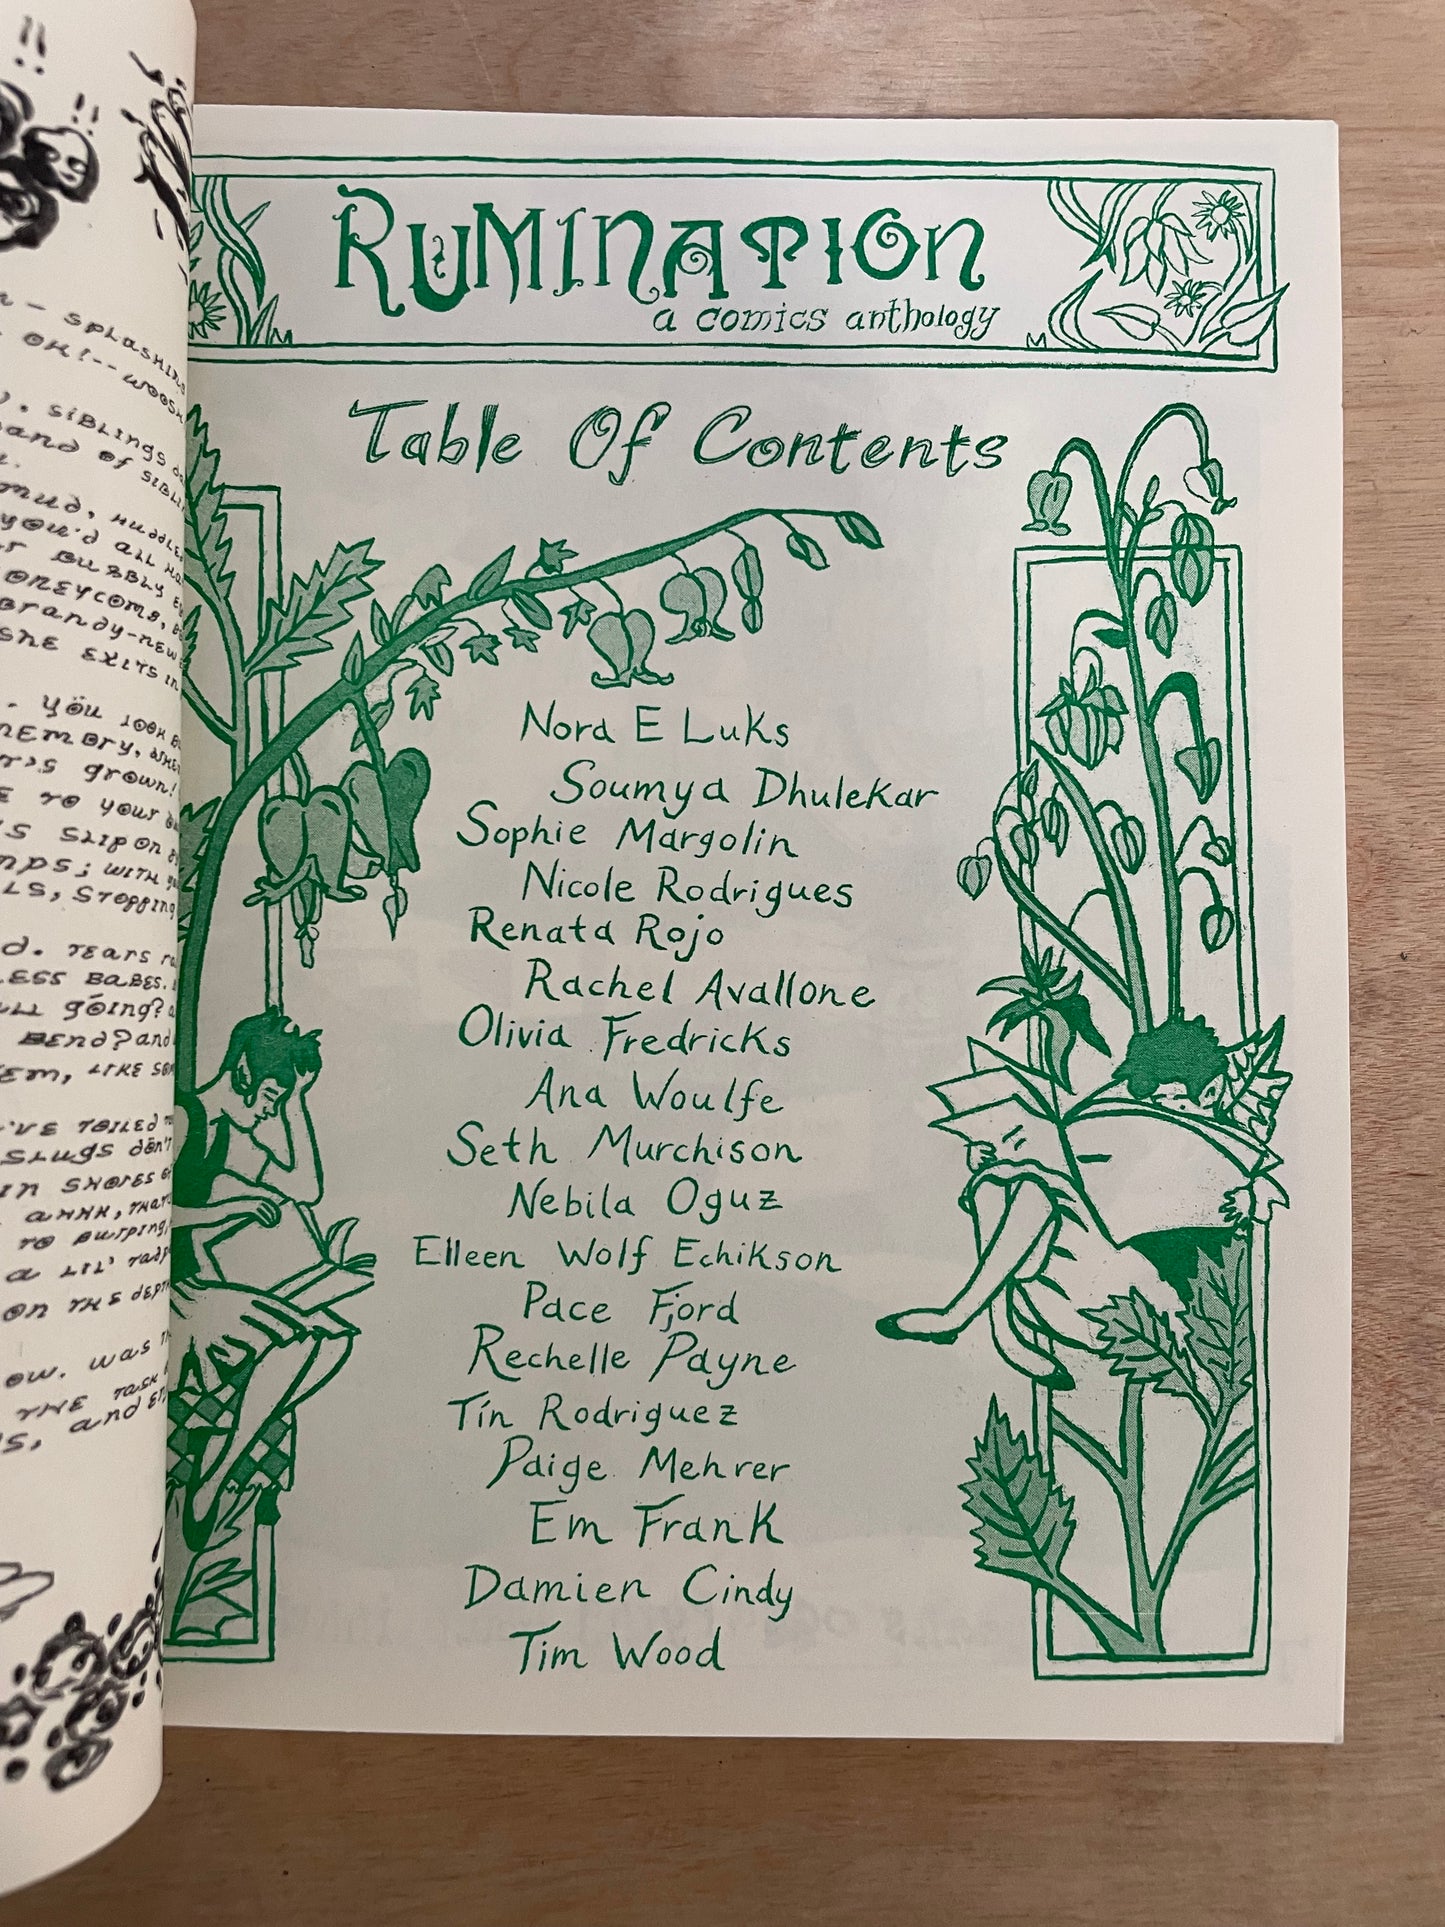 !!
!!
SPLASHING
OH!--WOOSH
SIBLINGS
and OF SIBLI
mud, HUDDLE
you'd ALL HA
BUBBLY
ONEYCOMB,
Brandy-new
SHE EXITS IN
YOU LOOK
MEMORY,
grown!
TO YOUR
SLIP ON
; WITH
LS, STOPPING
TEARS
LESS BABES.
GOING?
BEND? and
EM, LIKE
'VE TOILED
SLUGS dōn't
IN SHORES
AHHH, THAT
TO BURPING,
a LIL' TADP
on THE DEPT
OW. WAS
THE TASK
and
RUMINATION
a comics anthology
Table Of Contents
Nora E Luks
Soumya Dhulekar
Sophie Margolin
Nicole Rodrigues
Renata Rojo
Rachel Avallone
Olivia Fredricks
Ana Woulfe
Seth Murchison
Nebila Oguz
Elleen Wolf Echikson
Pace Fjord
Rechelle Payne
Tín Rodriguez
Paige Mehrer
Em Frank
Damien Cindy
Tim Wood